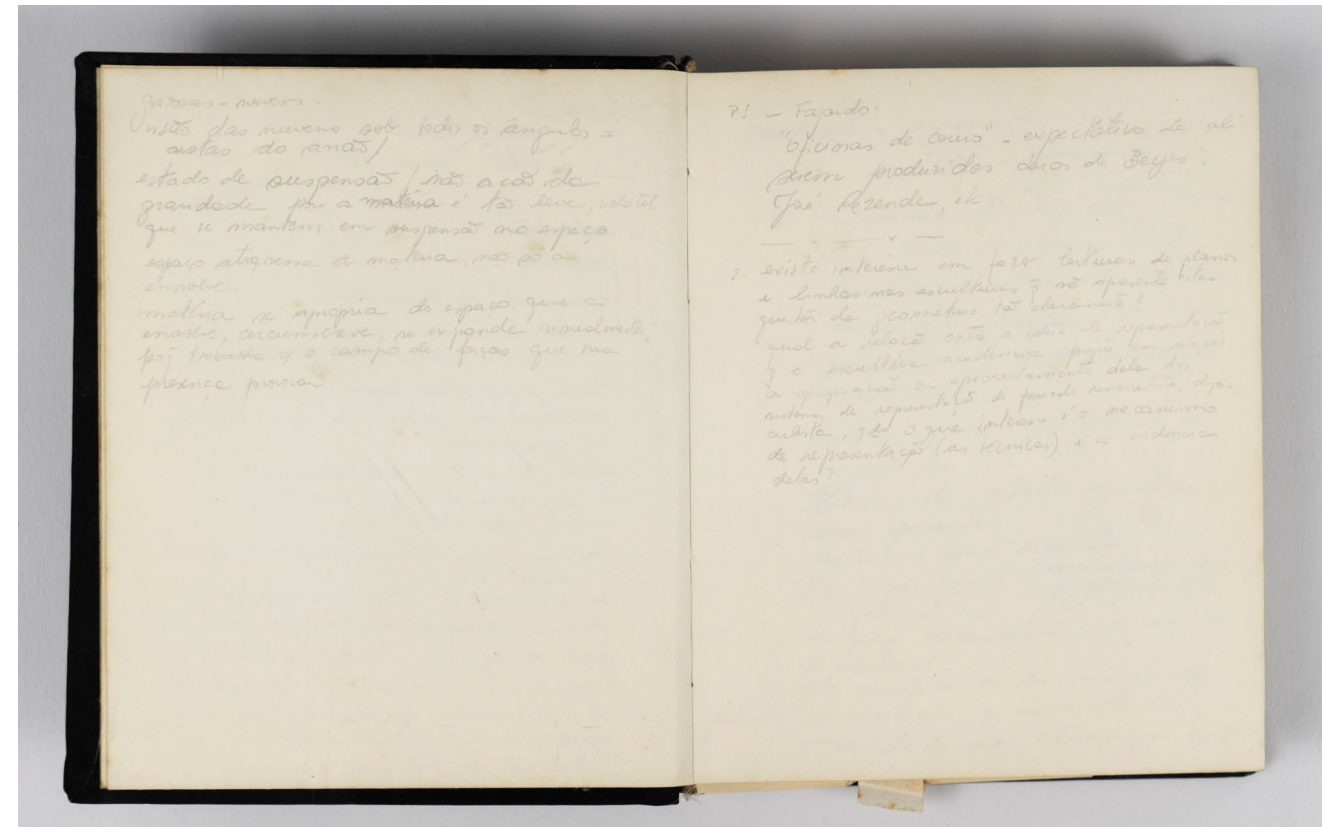 visão das nuvens sob todos os ângulos =
vistas do avião/
estado de suspensão / não ação da
gravidade pois a matéria é tão leve, volátil
que se mantem em suspensão no espaço.
espaço atravessa a matéria, não só a
envolve.
matéria se apropia do espaço que a
envolve, circunscreve, se expande visualmente,
faz trabalhar o campo de forças que sua
presença provoca
P1 - Fajardo:
"oficinas de couro" - expectativa de ali
serem produzidas obras de Beuys,
José Rezende, etc
2. existe interesse em fazer leituras de planos
e linhas nas esculturas q não apresente
questão da geometria tão claramente?
qual a relação entre a idéia de representação
q a escultura academica
a apropriação ou aproveitamento dela dos
sistemas de representação do período renascentista,
cubista, qdo o que interessa é o mecanismo
de representação (as técnicas) e a evidencia
delas?